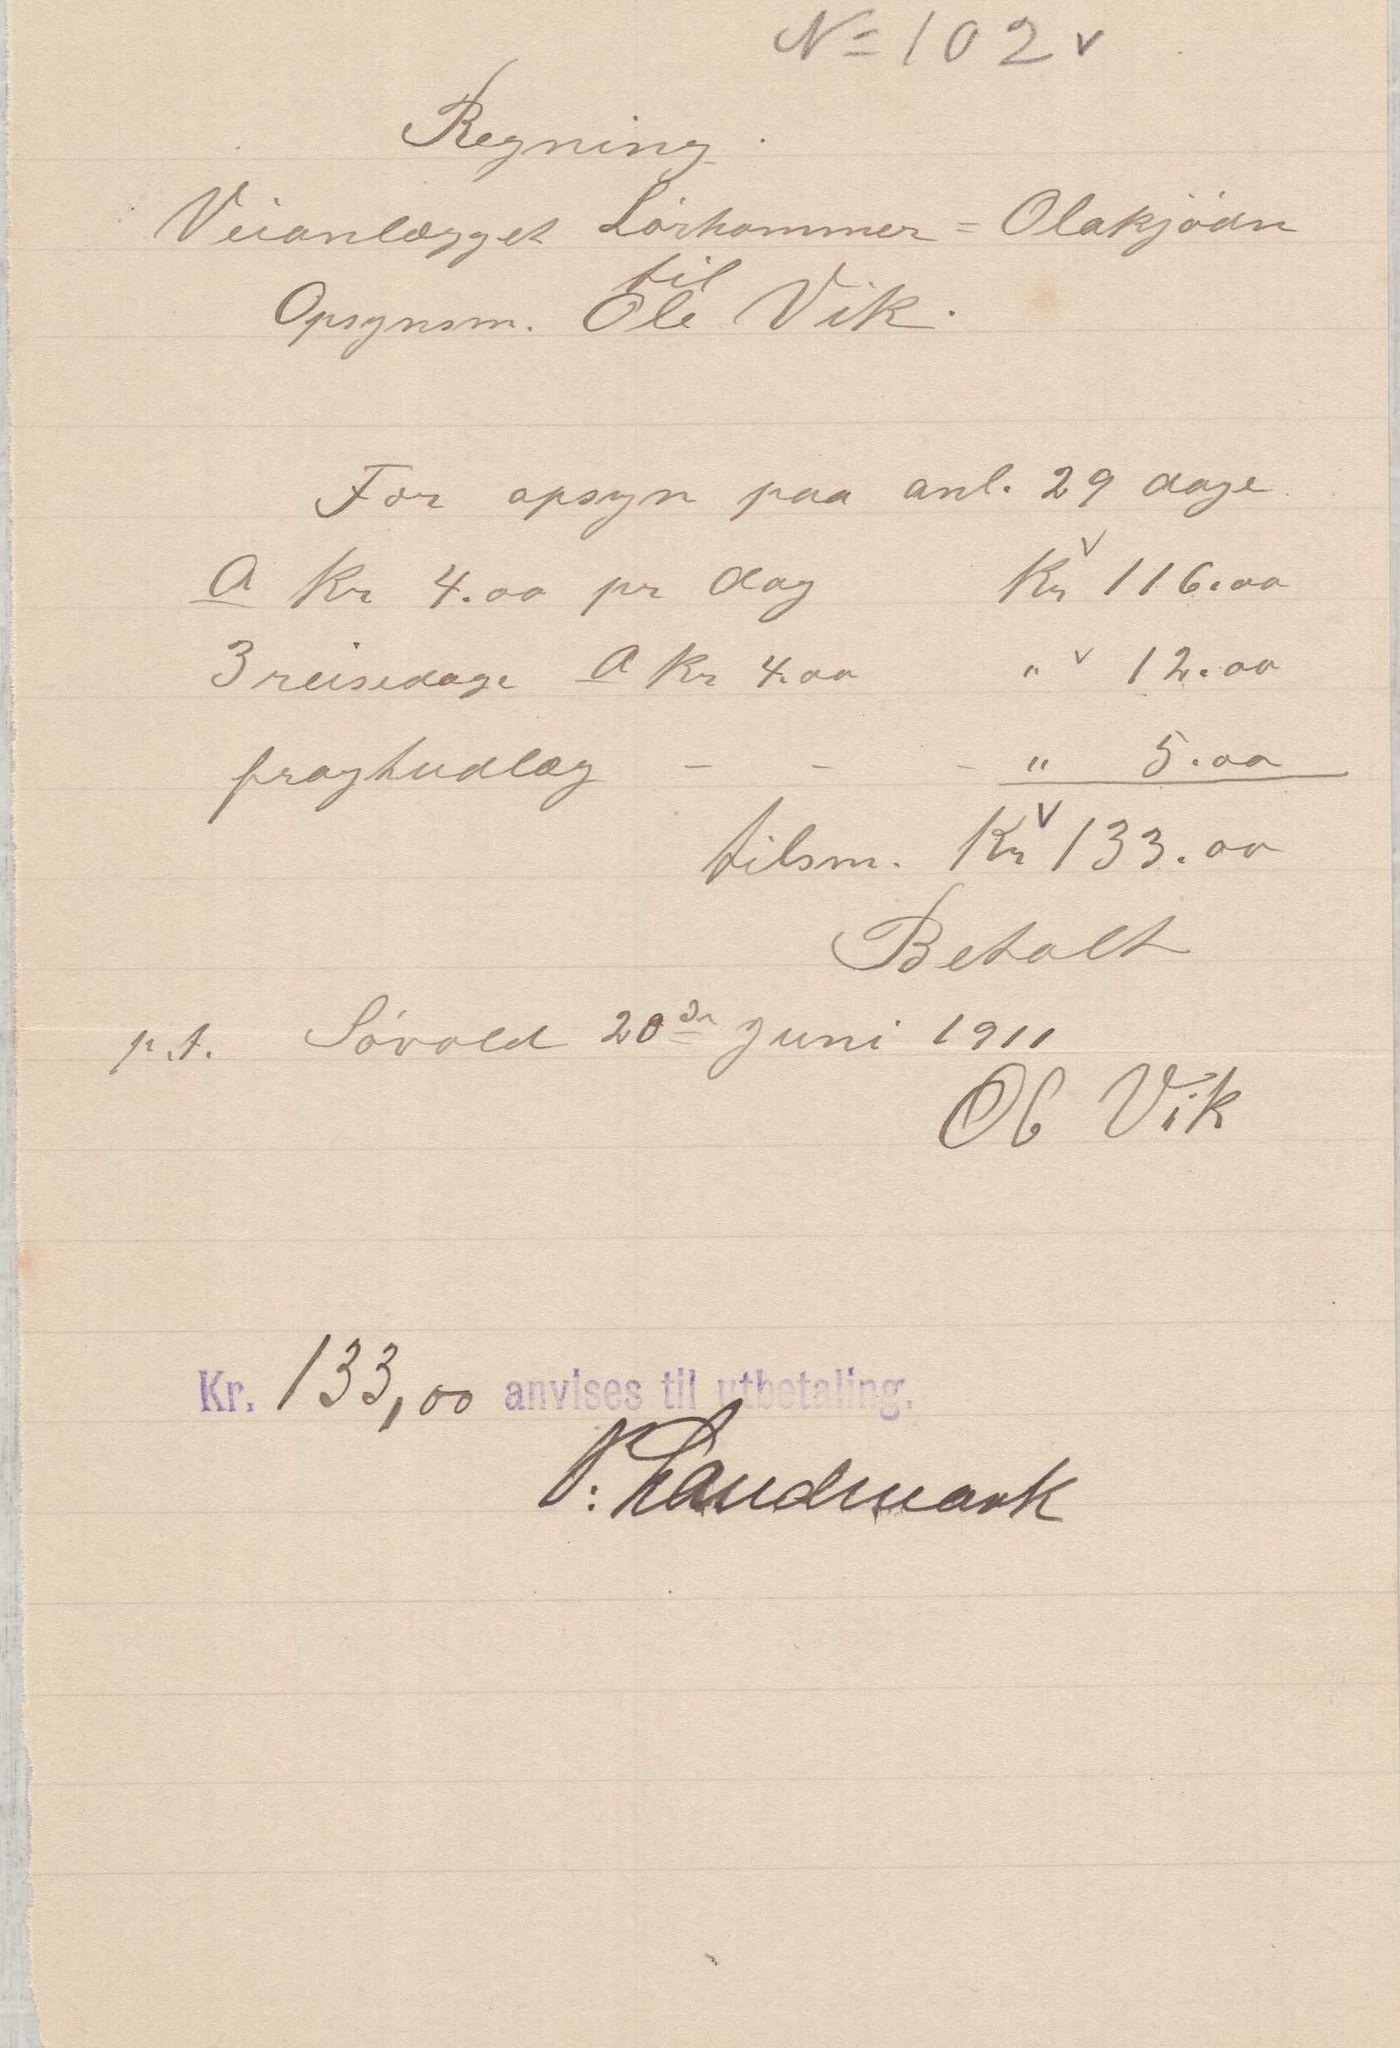 No 102 v
Regning.
Veianlægget Lörhammer = Olakjödn
til
Opsynsm. Ole Vik.
For opsyn paa anl. 29 dage
a Kr 4.00 pr dag Kr 116.00
3 reisedage a Kr 4.00 " 12.00
fragtudlæg - - - " 5.00
tilsm. Kr 133.00
Betalt
p.t. Sövold 20de Juni 1911
O Vik
Kr. 133,00 anvises til utbetaling.
N. Landmark